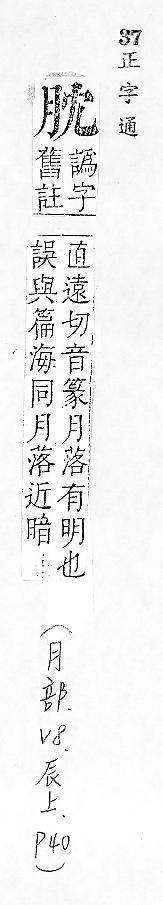 37正字通
譌字
舊註
直遠切音篆月落有明也
誤與篇海同月落近暗
(月部.V8.辰上.P40)